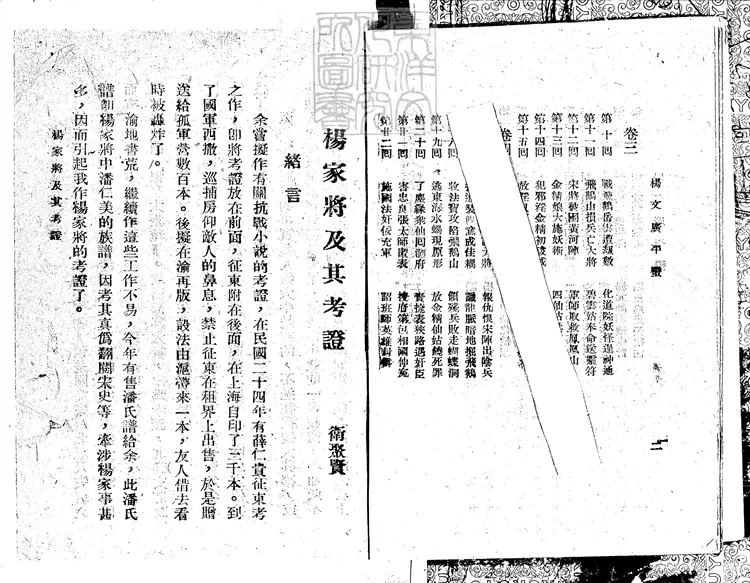 楊文廣平蠻
二
卷三
第十回
化道院妖怪逞神通
第十一回 飛鵝山損兵亡大將
碧雲姑奉命送靈符
第十二回 宋將被困黃河陣
軍師取救鳳凰山
第十三回 金精娘大施妖術
四仙姑
第十四回 犯邪淫金精初
第十五回 放
報仇恨宋陣出陰兵
成佳耦
讖龍脈暗地掘飛鵝
牧法寶攻陷飛鵝山
領殘兵敗走蝴蝶洞
第十九回 逃東海水蝎現原形
放金精仙姑饒死罪
第二十回 了塵緣衆仙回洞府
賷捷表狹路遇奸臣
第廿一回 害忠良張太師匿表
相國仲冤
第廿二回 施國法奸佞充軍
詔班師英雄
楊家將及其考證
衛聚賢
緒言
余嘗擬作有關抗戰小說的考證,在民國二十四年有薛仁貴征東考
之作,卽將考證放在前面,征東附在後面,在上海自印了三千本。到
了國軍西撤,巡捕房仰敵人的鼻息,禁止征東在租界上出售,於是贈
送給孤軍營數百本。後擬在渝再版,設法由滬帶來一本,友人借去看
時被轟炸了。
渝地書荒,繼續作這些工作不易,今年有售潘氏譜給余,此潘氏
譜卽楊家將中潘仁美的族譜,因考其眞僞翻閱宋史等,牽涉楊家事甚
多,因而引起我作楊家將的考證了。
楊家將及其考證